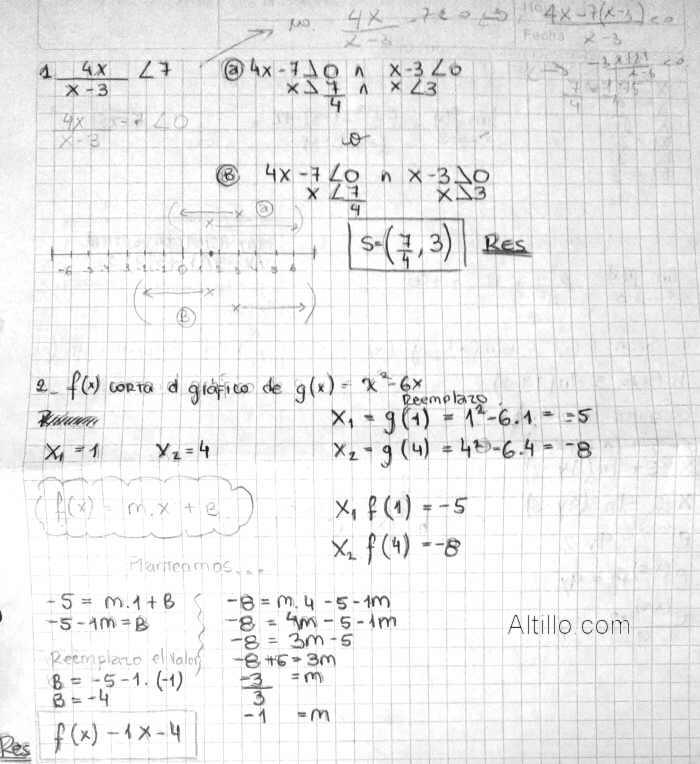 no 4x/(x-3) - 7 < 0 4x-7(x-3)/(x-3) < 0
Fecha
1. 4x/(x-3) < 7 ⓐ 4x-7 > 0 ∩ x-3 < 0
x > 7/4 ∩ x < 3
4x/(x-3) - 7 < 0
o
Ⓑ 4x-7 < 0 ∩ x-3 > 0
x < 7/4 x > 3
ⓐ
S=(7/4, 3) Res
-6 -5 -4 -3 -2 -1 0 1 2 3 4 5 6
Ⓑ
2_ f(x) corta el gráfico de g(x) = x²-6x
Reemplazo
X₁ = g(1) = 1²-6.1 = =-5
X₁ = 1 X₂ = 4 X₂ = g(4) = 4²-6.4 = -8
f(x) = m.x + B
X₁ f(1) = -5
X₂ f(4) = -8
Planteamos...
-5 = m.1 + B -8 = m.4 -5-1m
-5-1m = B -8 = 4m -5-1m
-8 = 3m-5
Reemplazo el valor -8+5 = 3m
B = -5-1.(-1) -3/3 = m
B = -4 -1 = m
Res f(x) -1x-4
Altillo.com